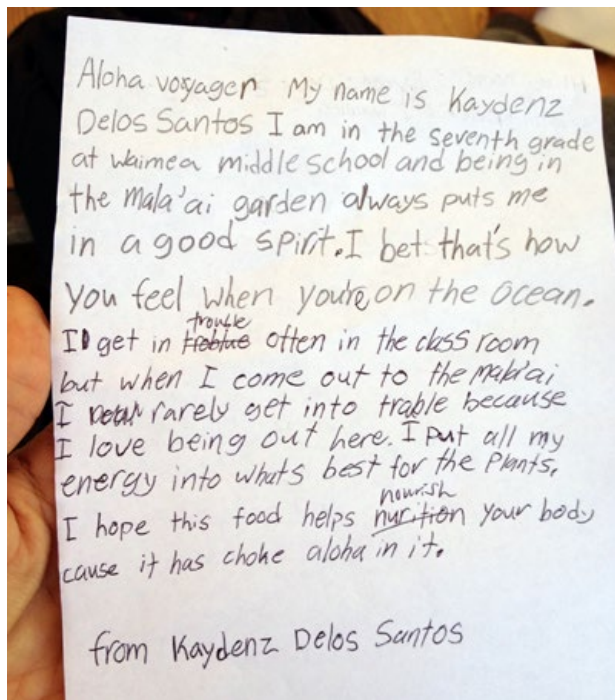 Aloha voyager My name is Kaydenz
Delos Santos I am in the seventh grade
at Waimea middle school and being in
the Mala'ai garden always puts me
in a good spirit. I bet that's how
you feel when you're on the ocean.
trouble
I get in treblue often in the class room
but when I come out to the mala'ai
I rarely get into trable because
I love being out here. I put all my
energy into whats best for the plants.
nourish
I hope this food helps nurition your body
cause it has choke aloha in it.
from Kaydenz Delos Santos